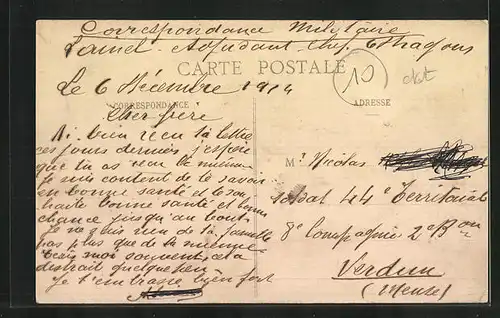 Correspondance Militaire
Adjudant
CARTE POSTALE
10
Le 6 Décembre 1914
CORRESPONDANCE
ADRESSE
Cher frere
Ai bien recu ta lettre
ces jours derniers j'espere
que tu as recu la mienne
Je suis content de te savoir
en bonne santé et te sou
haite bonne santé et bonne
chance jusqu'au bout
Je ne sais rien de ta famille
pas plus que de la mienne
moi souvent, cela
distrait quelque peu
Je t'embrasse bien fort
Mr Nicolas
soldat 44e Territorial
8e Compagnie 2e Bon
Verdun
(Meuse)